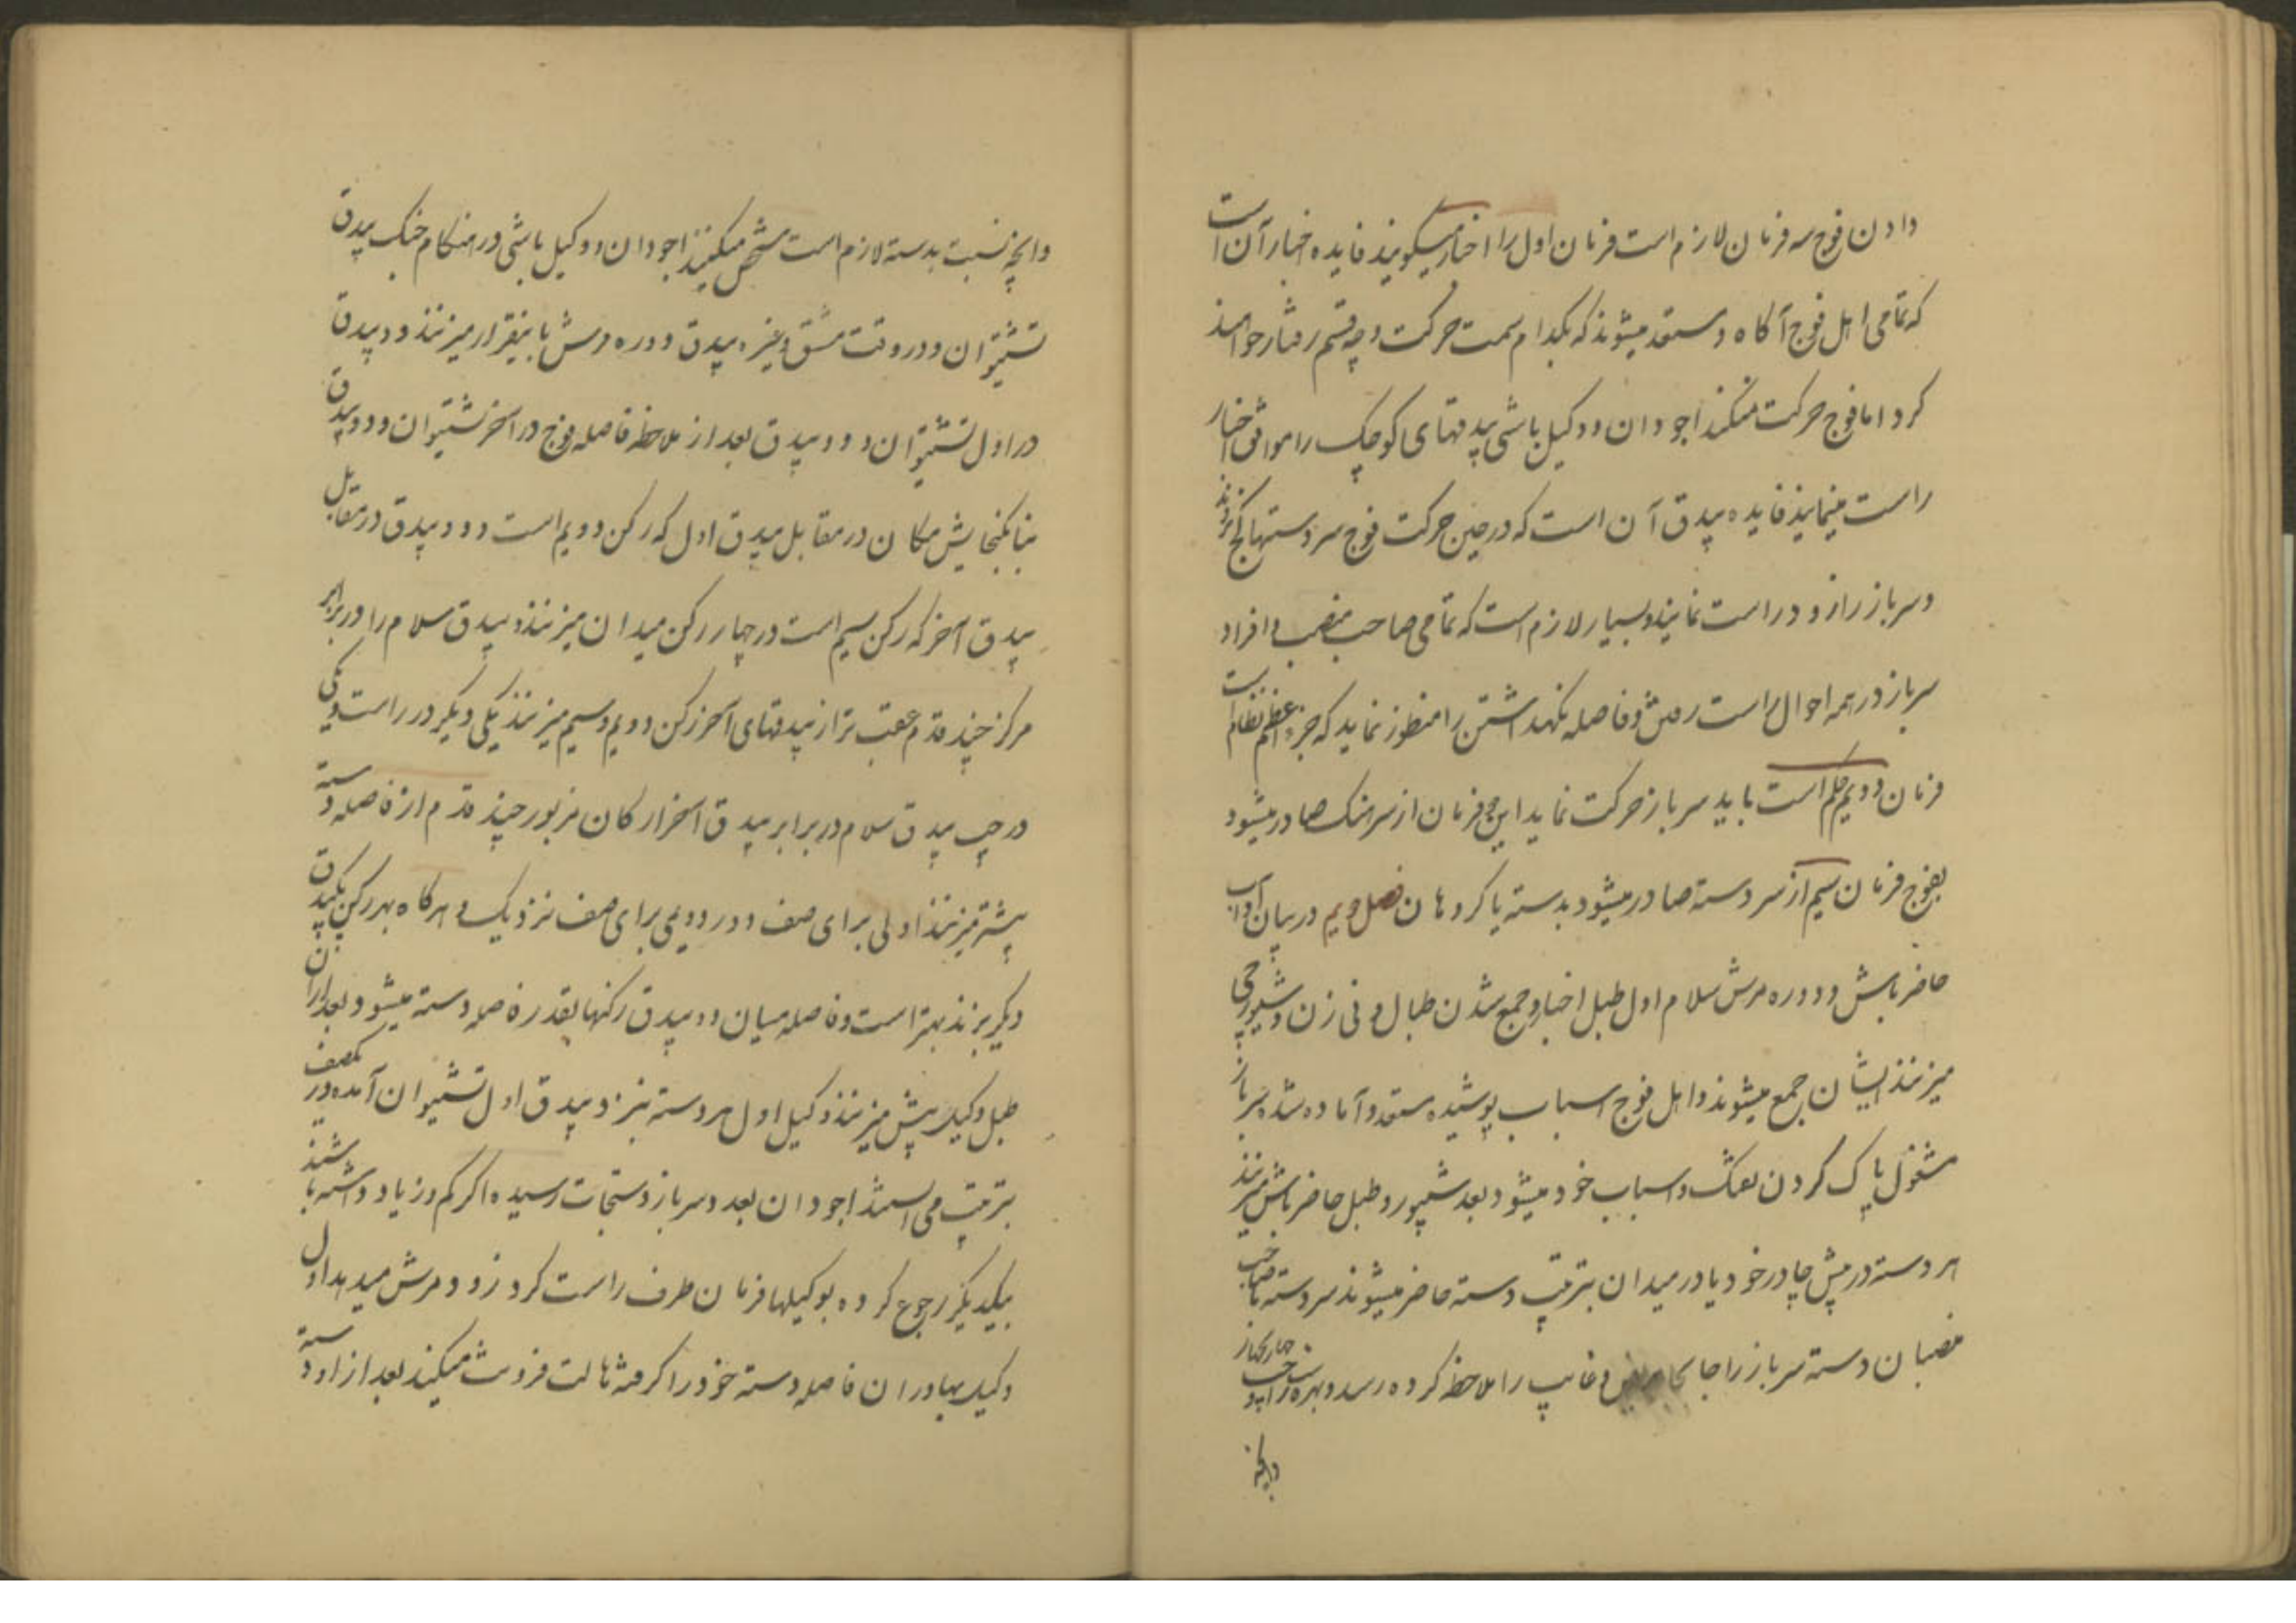 دادن فوج سه فرمان لازم است فرمان اول را اخبار میکویند فایده اخبار آن است
که تمامی اهل فوج آکاه و مستعد میشوند که بکدام سمت حرکت و چه قسم رفتار خواهند
کرد اما فوج حرکت نمیکند اجودان و وکیل باشی بیدقهای کوچک را موافق اخبار
راست مینمایند فایده بیدق آن است که در حین حرکت فوج سر دستها کج نروند
و سرباز را زود راست نمایند و بسیار لازم است که تمامی صاحب منصب و افراد
سرباز در همه احوال راست رفتن و فاصله نکهداشتن را منظور نماید که جزء اعظم نظام است
فرمان دویم حکم است باید سرباز حرکت نماید این فرمان از سرهنک صادر میشود
بفوج فرمان سیم از سر دسته صادر میشود بدسته یا کروهان فصل دویم در بیان آداب
حاضر باش و دوره مرش سلام اول طبل اخبار و جمع شدن طبال و نی زن و شیپورچی
میزنند ایشان جمع میشوند و اهل فوج اسباب پوشیده مستعد و آماده شده سرباز
مشغول پاک کردن تفنک و اسباب خود میشود بعد شیپور و طبل حاضر باش میزنند
هر دسته در پیش چادر خود یا در میدان بترتیب دسته حاضر میشوند سر دسته با صاحب
منصبان دسته سرباز را جابجا مریض و غایب را ملاحظه کرده رسد و بهره
وانچه
وانچه نسبت بدسته لازم است مشخص میکنند اجودان و وکیل باشی در هنکام جنک بیدق
تشتیوان و در وقت مشق و غیره بیدق دوره مرش باینقرار میزنند دو بیدق
در اول تشتیوان و دو بیدق بعد از ملاحظه فاصله فوج در آخر تشتیوان و دو بیدق
بنا بکنجایش مکان در مقابل بیدق اول که رکن دویم است و دو بیدق در مقابل
بیدق آخر که رکن سیم است در چهار رکن میدان میزنند و بیدق سلام را در برابر
مرکز چند قدم عقب تر از بیدقهای آخر رکن دویم و سیم میزنند یکی دیکر در راست و یکی
در چپ بیدق سلام در برابر بیدق آخر ارکان مزبور چند قدم از فاصله دسته
پیشتر میزنند اولی برای صف دور دویمی برای صف نزدیک و هرکاه بهر رکن یکبیدق
دیکر بزنند بهتر است و فاصله میان دو بیدق رکنها بقدر فاصله دسته میشود بعد از آن
طبل وکیل پیش میزنند وکیل اول هر دسته بنزد بیدق اول تشتیوان آمده در یکصف
بترتیب می ایستند اجودان بعدد سرباز دستجات رسیده اکر کم و زیاد داشته باشند
بیکدیکر رجوع کرده بوکیلها فرمان طرف راست کرد زود مرش میدهد اول
وکیل بهادران فاصله دسته خود را کرفته هالت فرونت میکند بعد از او دسته